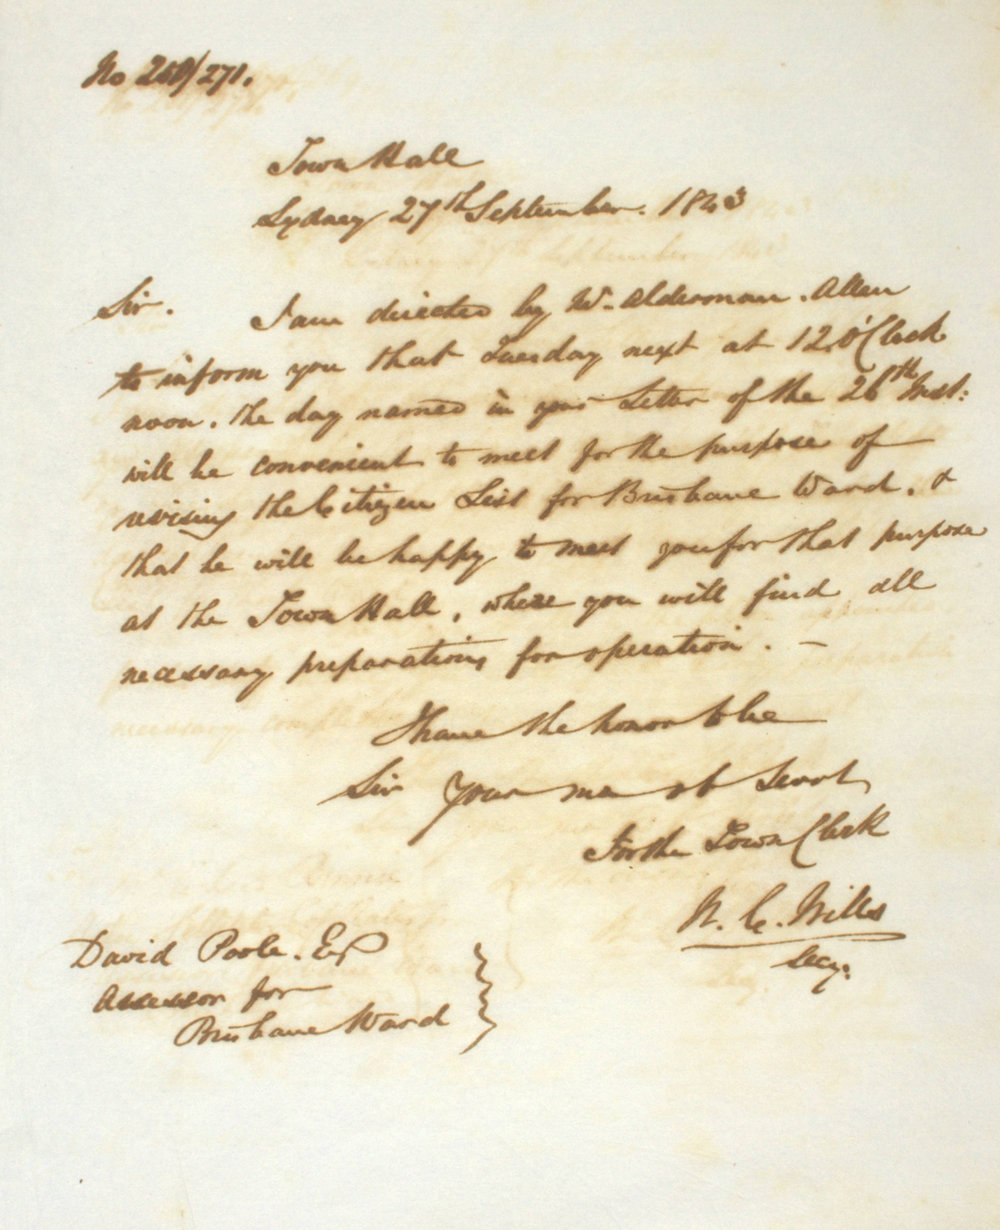 No 250/271.
Town Hall
Sydney 27th September. 1843
Sir. I am directed by Mr. Alderman. Allen
to inform you that Tuesday next at 12,O'Clock
noon. the day named in your Letter of the 26th Inst:
will be convenient to meet for the purpose of
revising the Citizen List for Brisbane Ward. &
that he will be happy to meet you for that purpose
at the Town Hall, where you will find all
necessary preparations for operation. —
I have the honor to be
Sir Your mo ob Servt
For the Town Clerk
W. C. Wills
Secy.
David Poole. Esq
Assessor for
Brisbane Ward